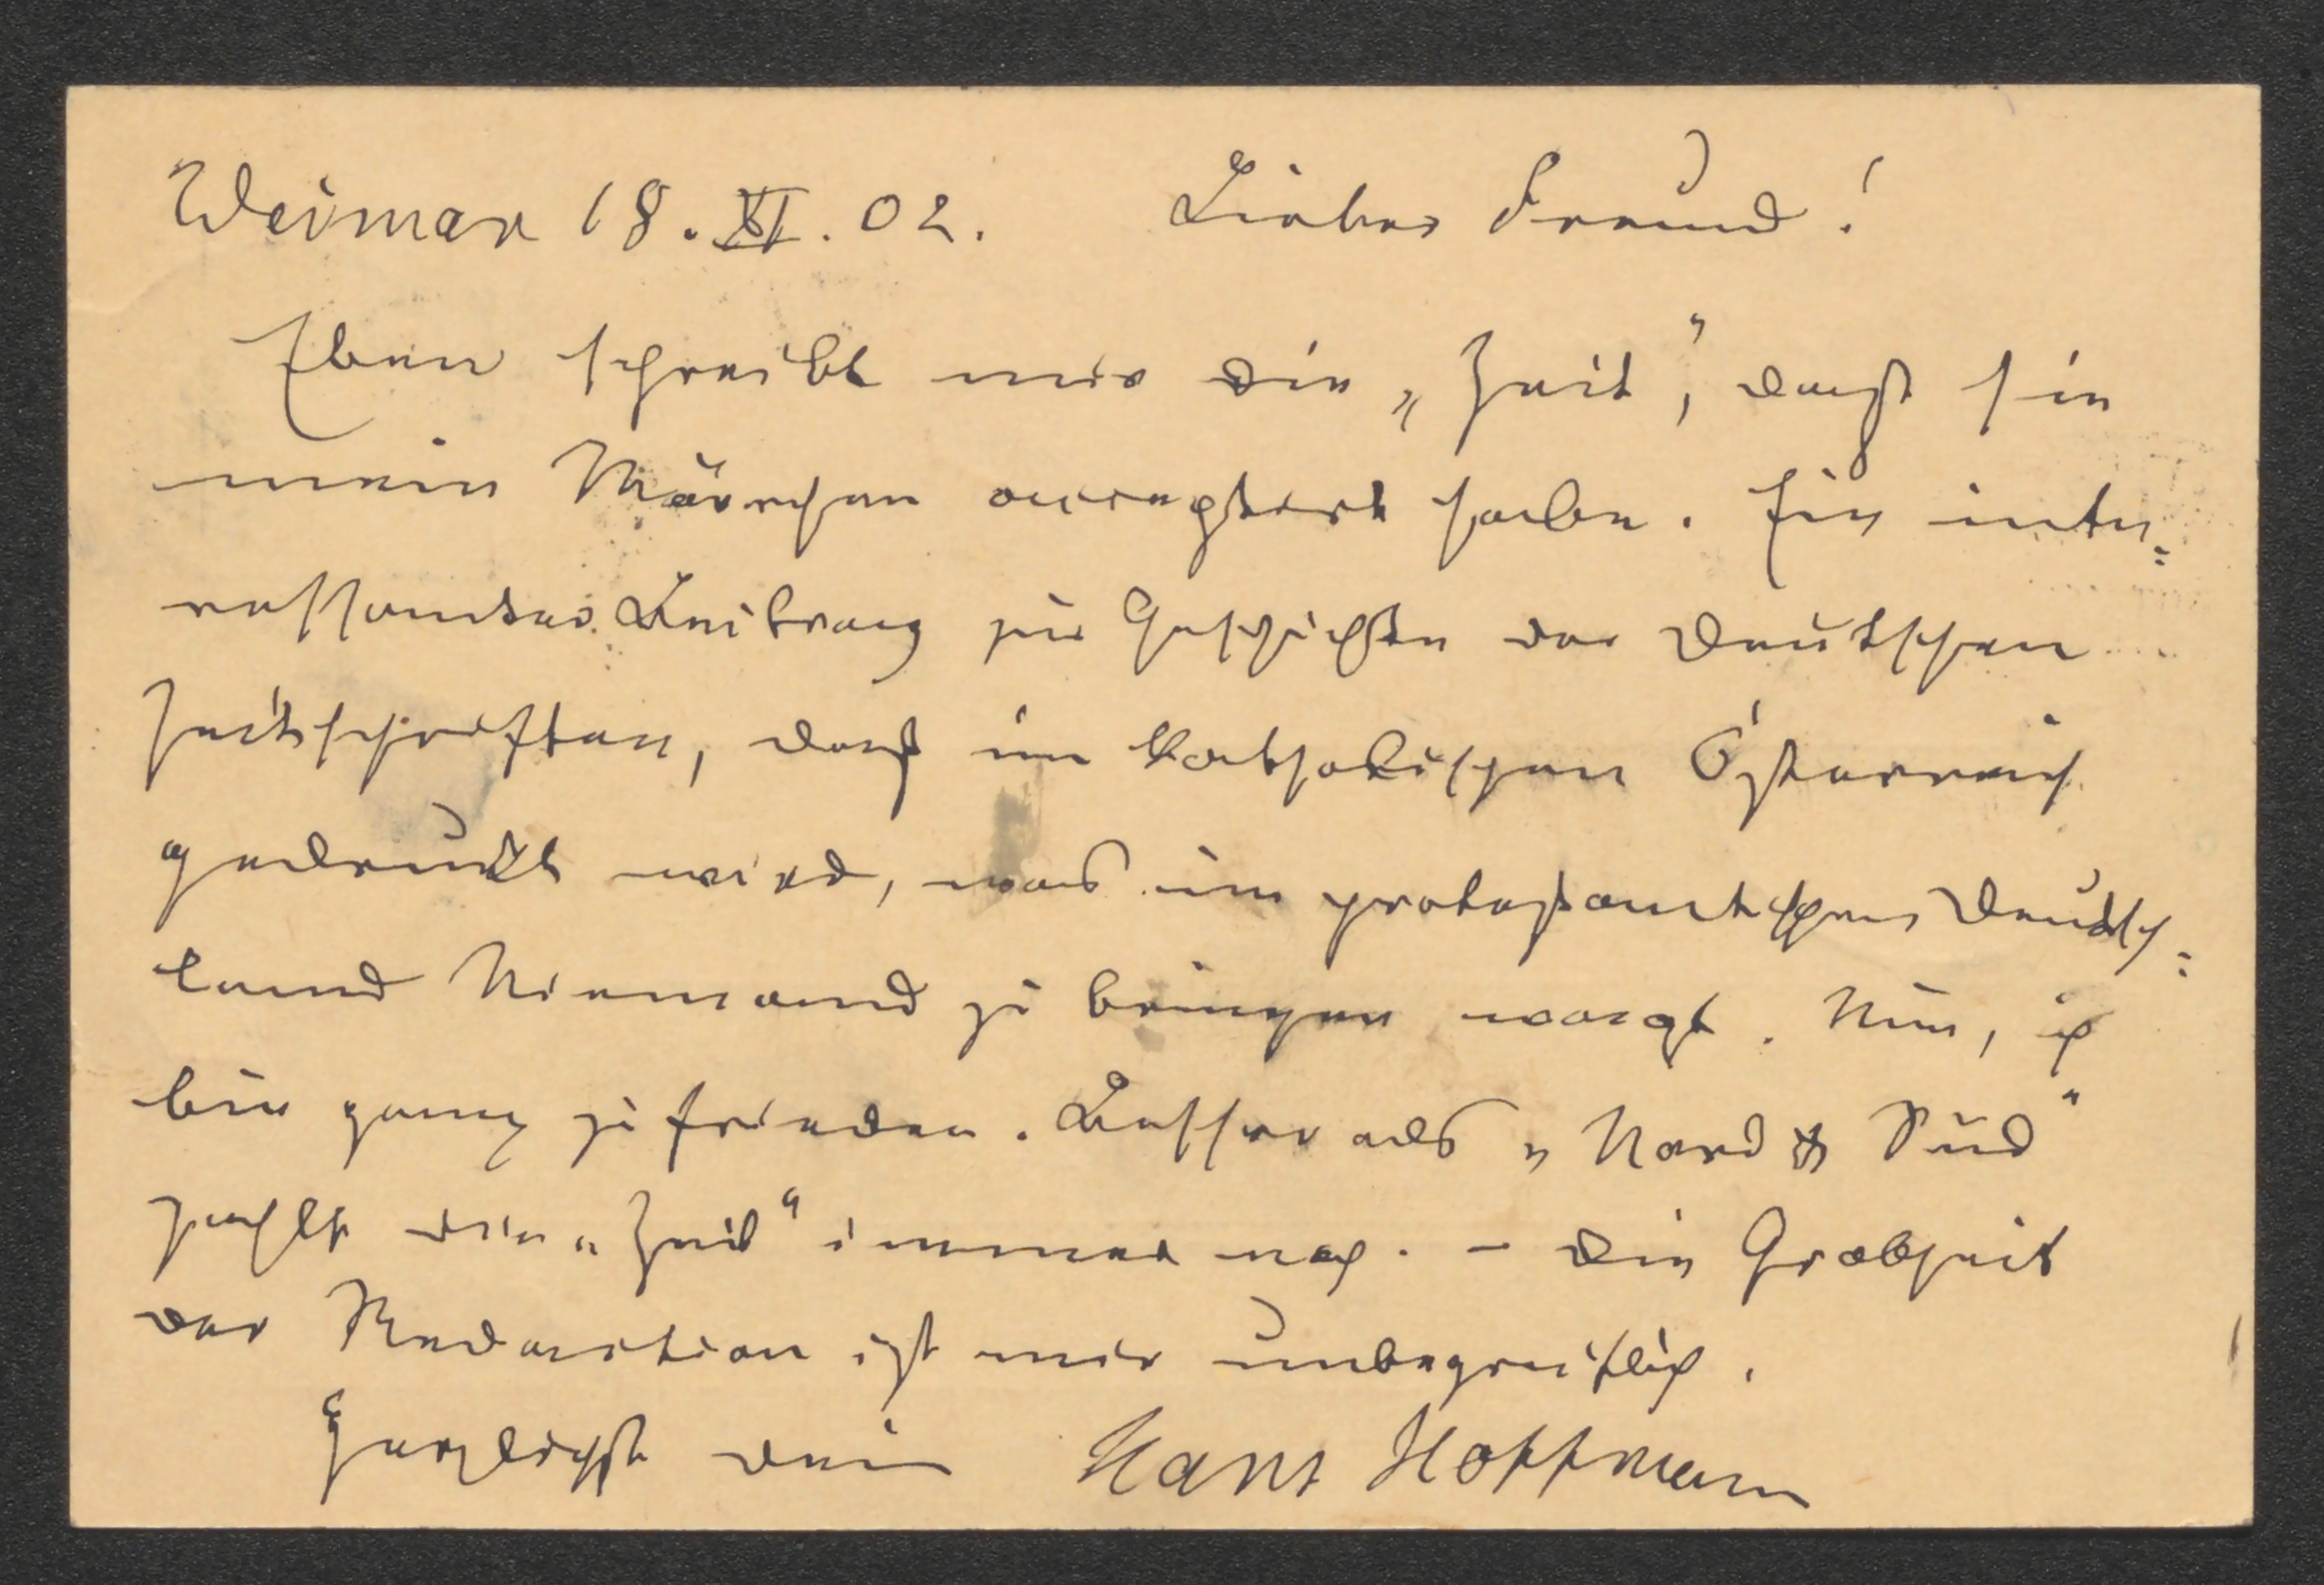 Weimar 18. XI. 02. Lieber Freund!
Eben schreibt mir die „Zeit“, daß sie
mein Märchen acceptiert habe. Ein inte-
ressanter Beitrag zur Geschichte der deutschen
Zeitschriften, daß im katholischen Österreich
gedruckt wird, was im protestantischen Deutsch-
land Niemand zu bringen wagt. Nun, ich
bin ganz zufrieden. Besser als „Nord & Süd“
zahlt die „Zeit“ immer noch. – Die Grobheit
der Redaction ist mir unbegreiflich.
Herzlichst dein Hans Hoffmann